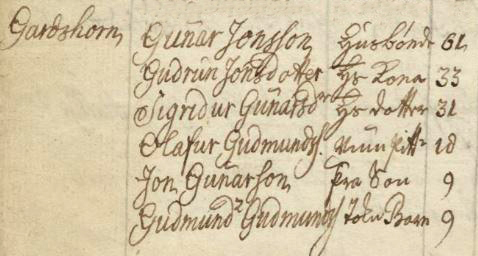 Gardshorn Guñar Jonsson Husbónde 61
Gudrün Jonsdotter Hs Kona 33
Sigridur Guñarsdr Hs dotter 31
Olafur Gudmunds. 18
Jon Guñarson Son 9
Gudmundr Gudmunds Barn 9